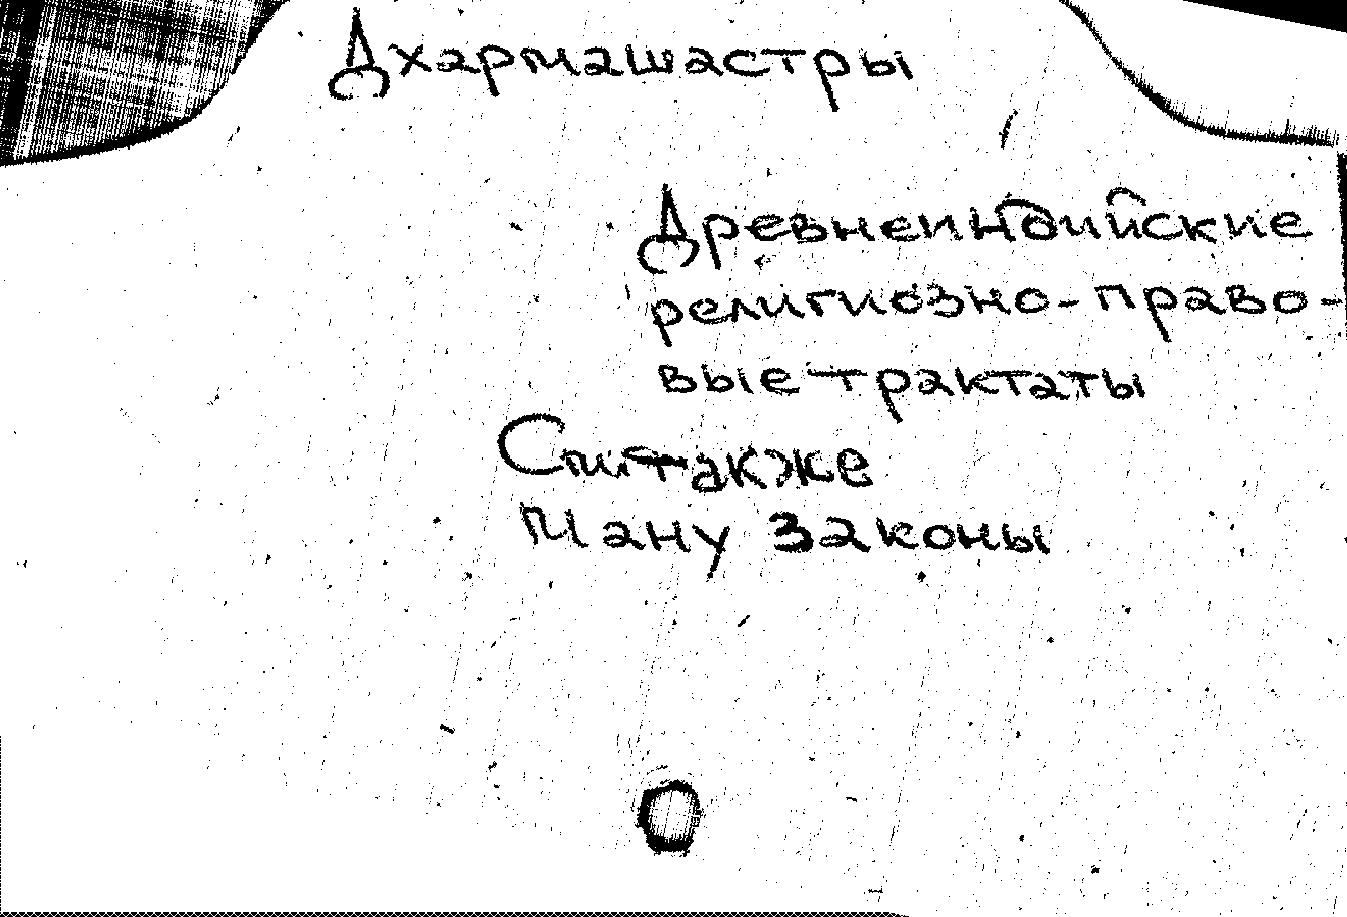 Дхармашастры
Древнеиндийские
религиозно-право-
вые трактаты
См. также
Ману законы